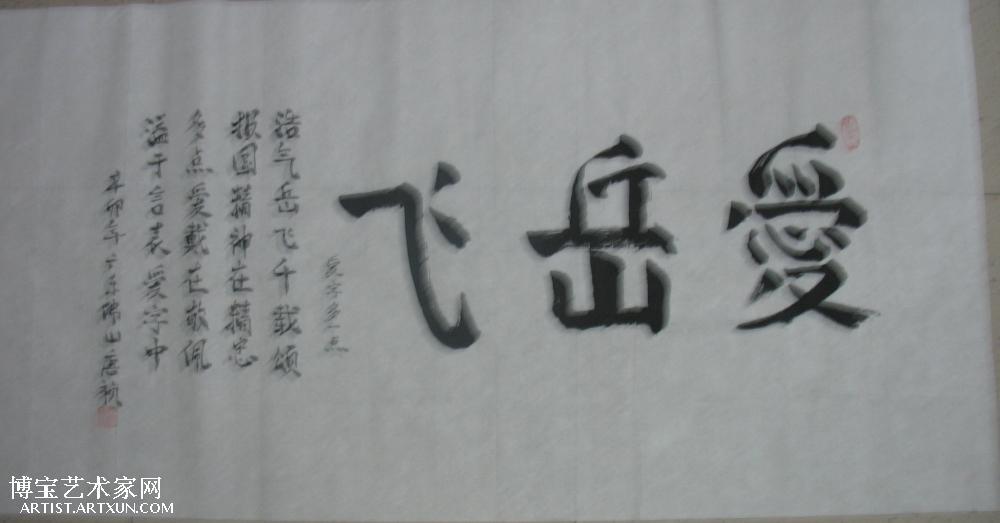 愛岳飞
爱字多一点
浩气岳飞千载颂
报国精神在精忠
多点爱戴在敬佩
溢于言表爱字中
辛卯年于佛山唐
博宝艺术家网
ARTIST.ARTXUN.COM